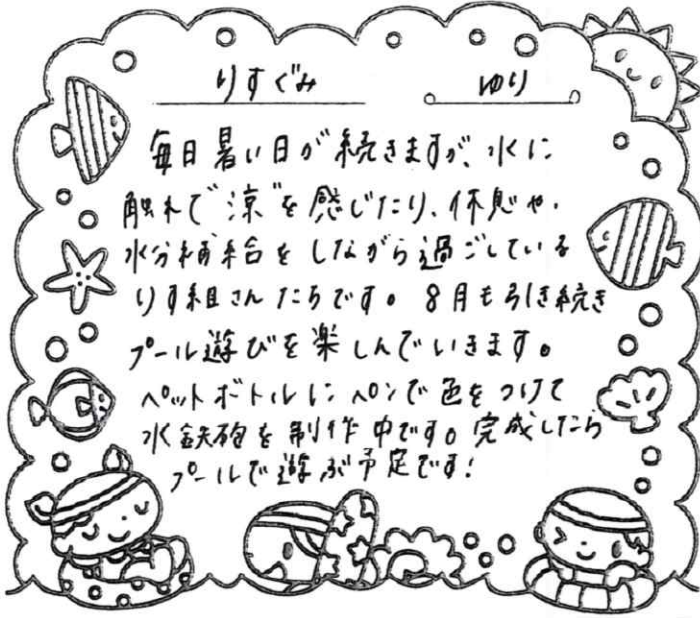 りすぐみ ゆり
毎日暑い日が続きますが、水に
触れて"涼"を感じたり、休息や、
水分補給をしながら過ごしている
りす組さんたちです。8月も引き続き
プール遊びを楽しんでいきます。
ペットボトルにペンで色をつけて
水鉄砲を制作中です。完成したら
プールで遊ぶ予定です!